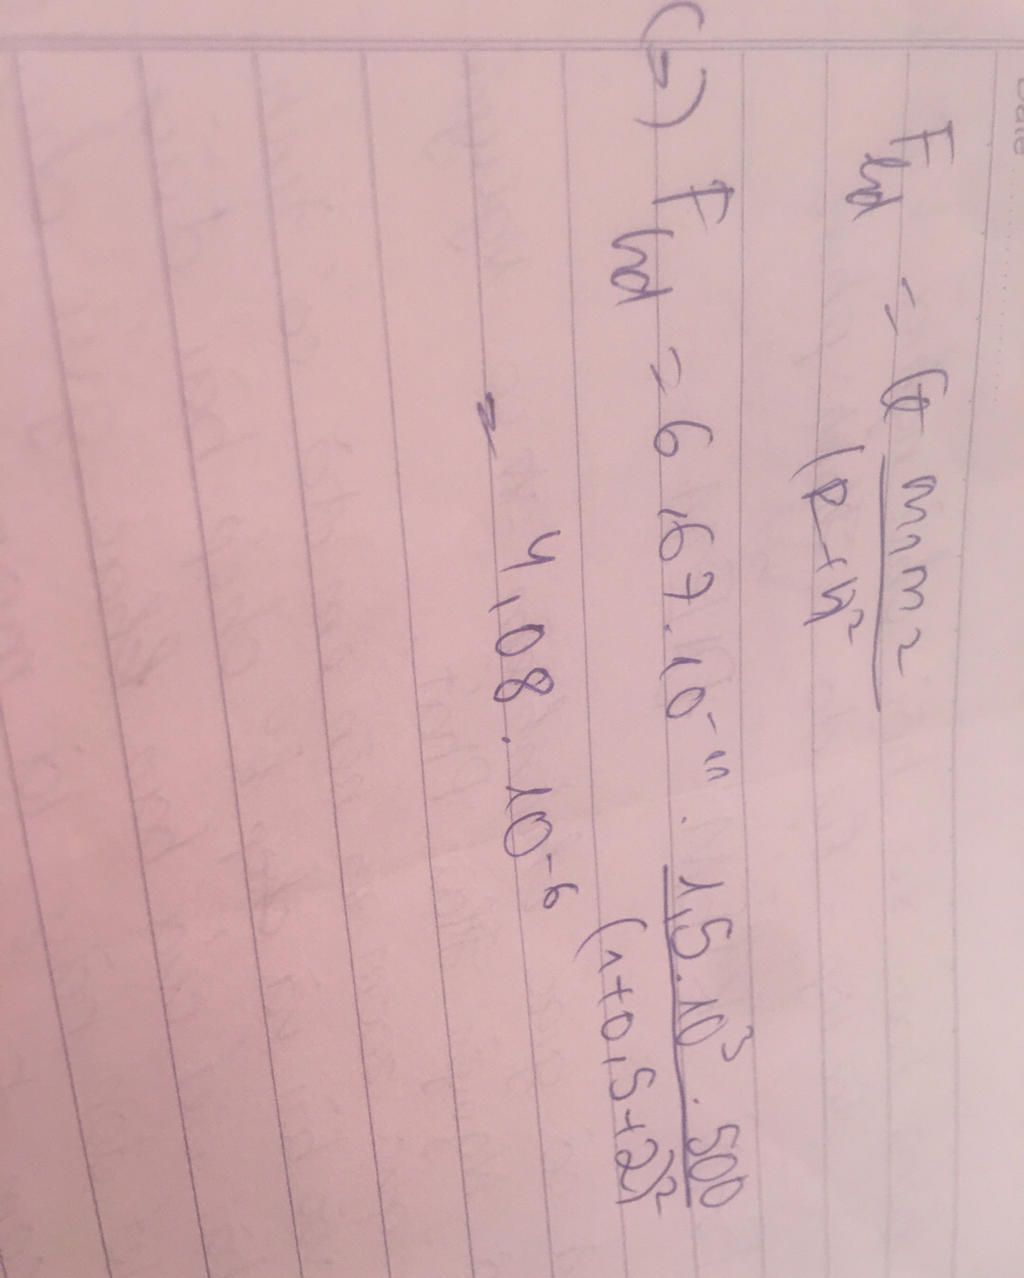 Date
F_hd = G \frac{m_1 m_2}{(R+h^2}
(=) F_hd = 6,67.10^{-11} . \frac{1,5.10^3 . 500}{(1+0,5+2)^2}
= 4,08.10^{-6}